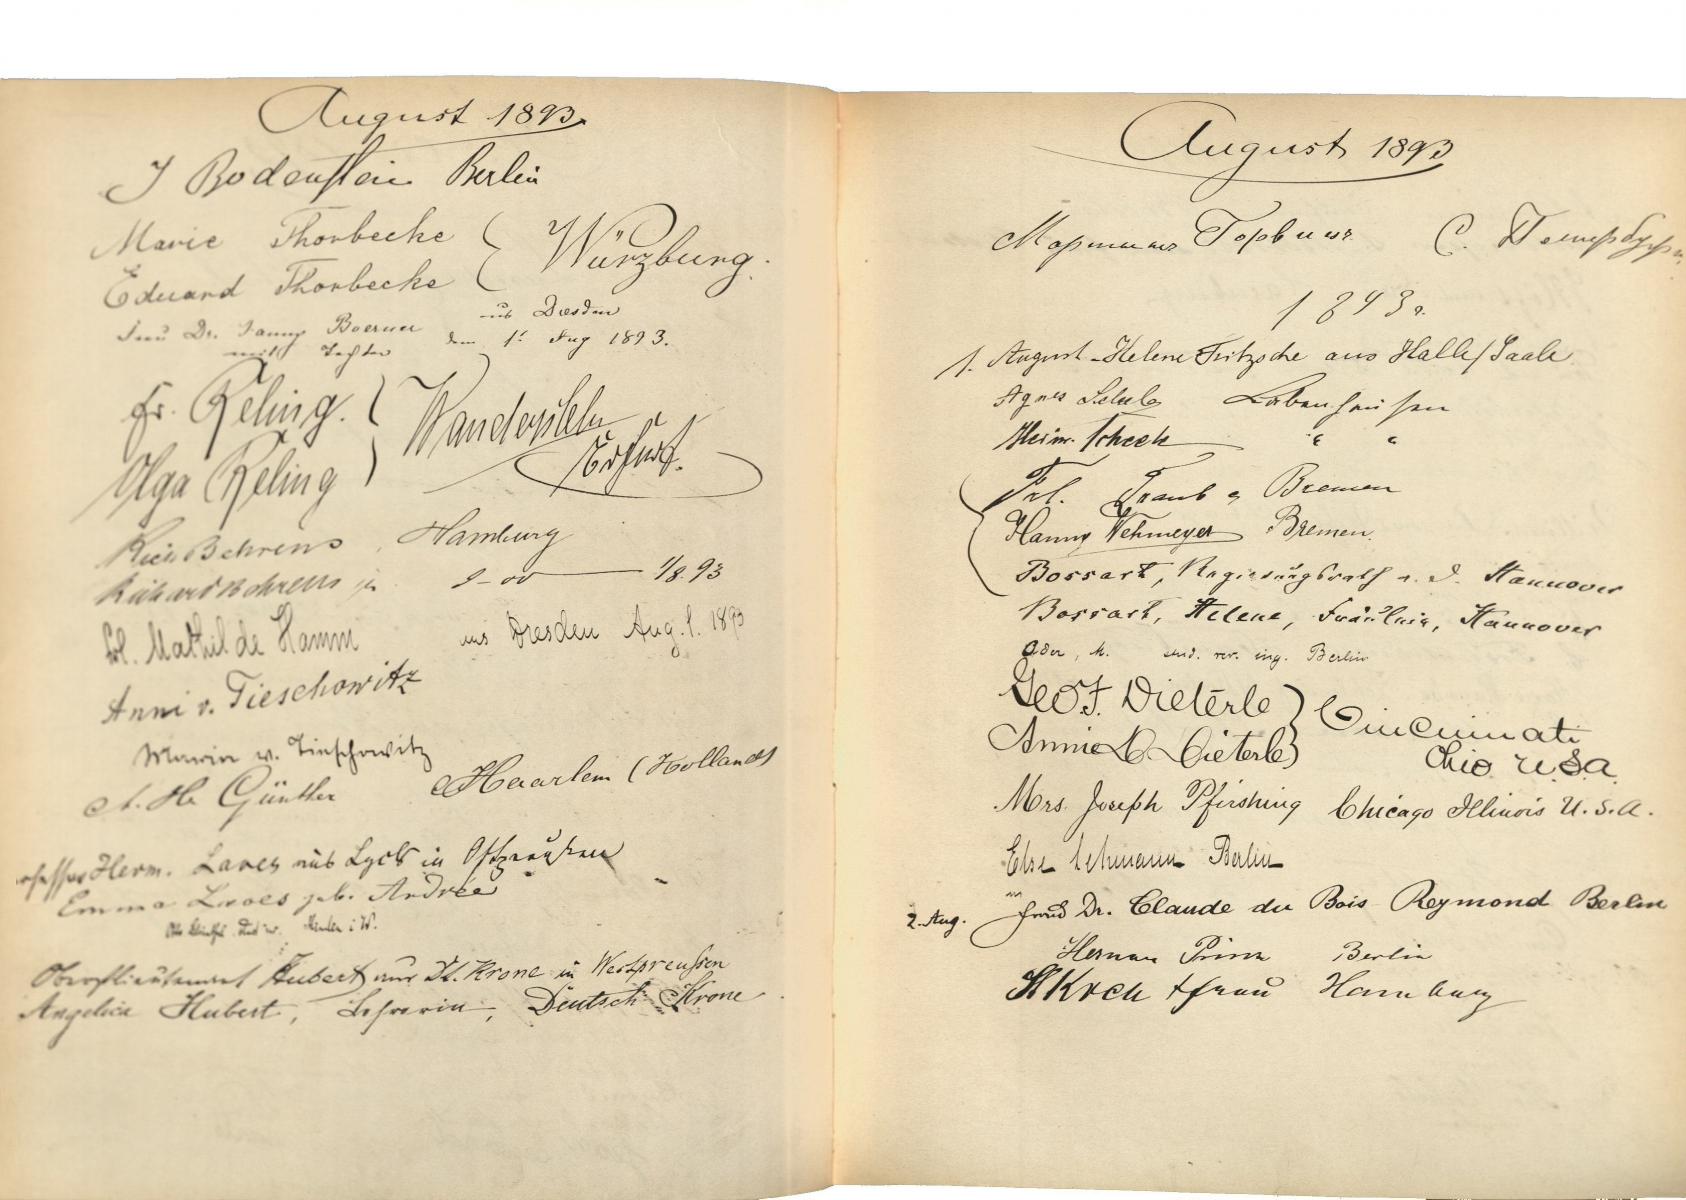 August 1893
J Bodenstein Berlin
Marie Thorbecke
Eduard Thorbecke
Würzburg.
Frau Dr. Fanny Boerner aus Dresden
mit Tochter den 1. Aug 1893.
Fr. Reling.
Olga Reling
Wandersleben
Erfurt.
Rich Behrens, Hamburg
Richard Behrens jr do 1/8.93
Frl. Mathilde Hamm aus Dresden Aug. 1. 1893
Anni v. Tieschowitz
Maria v. Tieschowitz
Günther Haarlem (Holland)
Professor Herm. Laves aus Lyck in Ostpreußen
Emma Laves geb. Andree
Oberstlieutenant Hubert aus Dt. Krone in Westpreussen
Angelica Hubert, Lehrerin, Deutsch Krone
August 1893
С. Петербургъ
1893 г.
1. August Helene Fritzsche aus Halle/Saale
Agnes
Heinr. Scheele " "
Frl. Traub Bremen
Hanny Wehmeyer Bremen.
Bossart, Regierungsrath a. D. Hannover
Bossart, Helene, Fräulein, Hannover
Oder, M. ing. Berlin
Geo. F. Dieterle
Annie C Dieterle
Cincinnati
Ohio U.S.A.
Mrs. Joseph Pfirshing Chicago Illinois U.S.A.
Else Lehmann Berlin
2. Aug. Frau Dr. Claude du Bois-Reymond Berlin
Herman Prinz Berlin
H Koch + Frau Hamburg